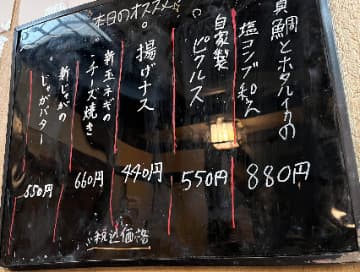 本日のオススメ
真鯛とホタルイカの
塩コンブ和え
880円
自家製
ピクルス
550円
揚げナス
440円
新玉ネギの
チーズ焼き
660円
新じゃがの
じゃがバター
550円
税込価格